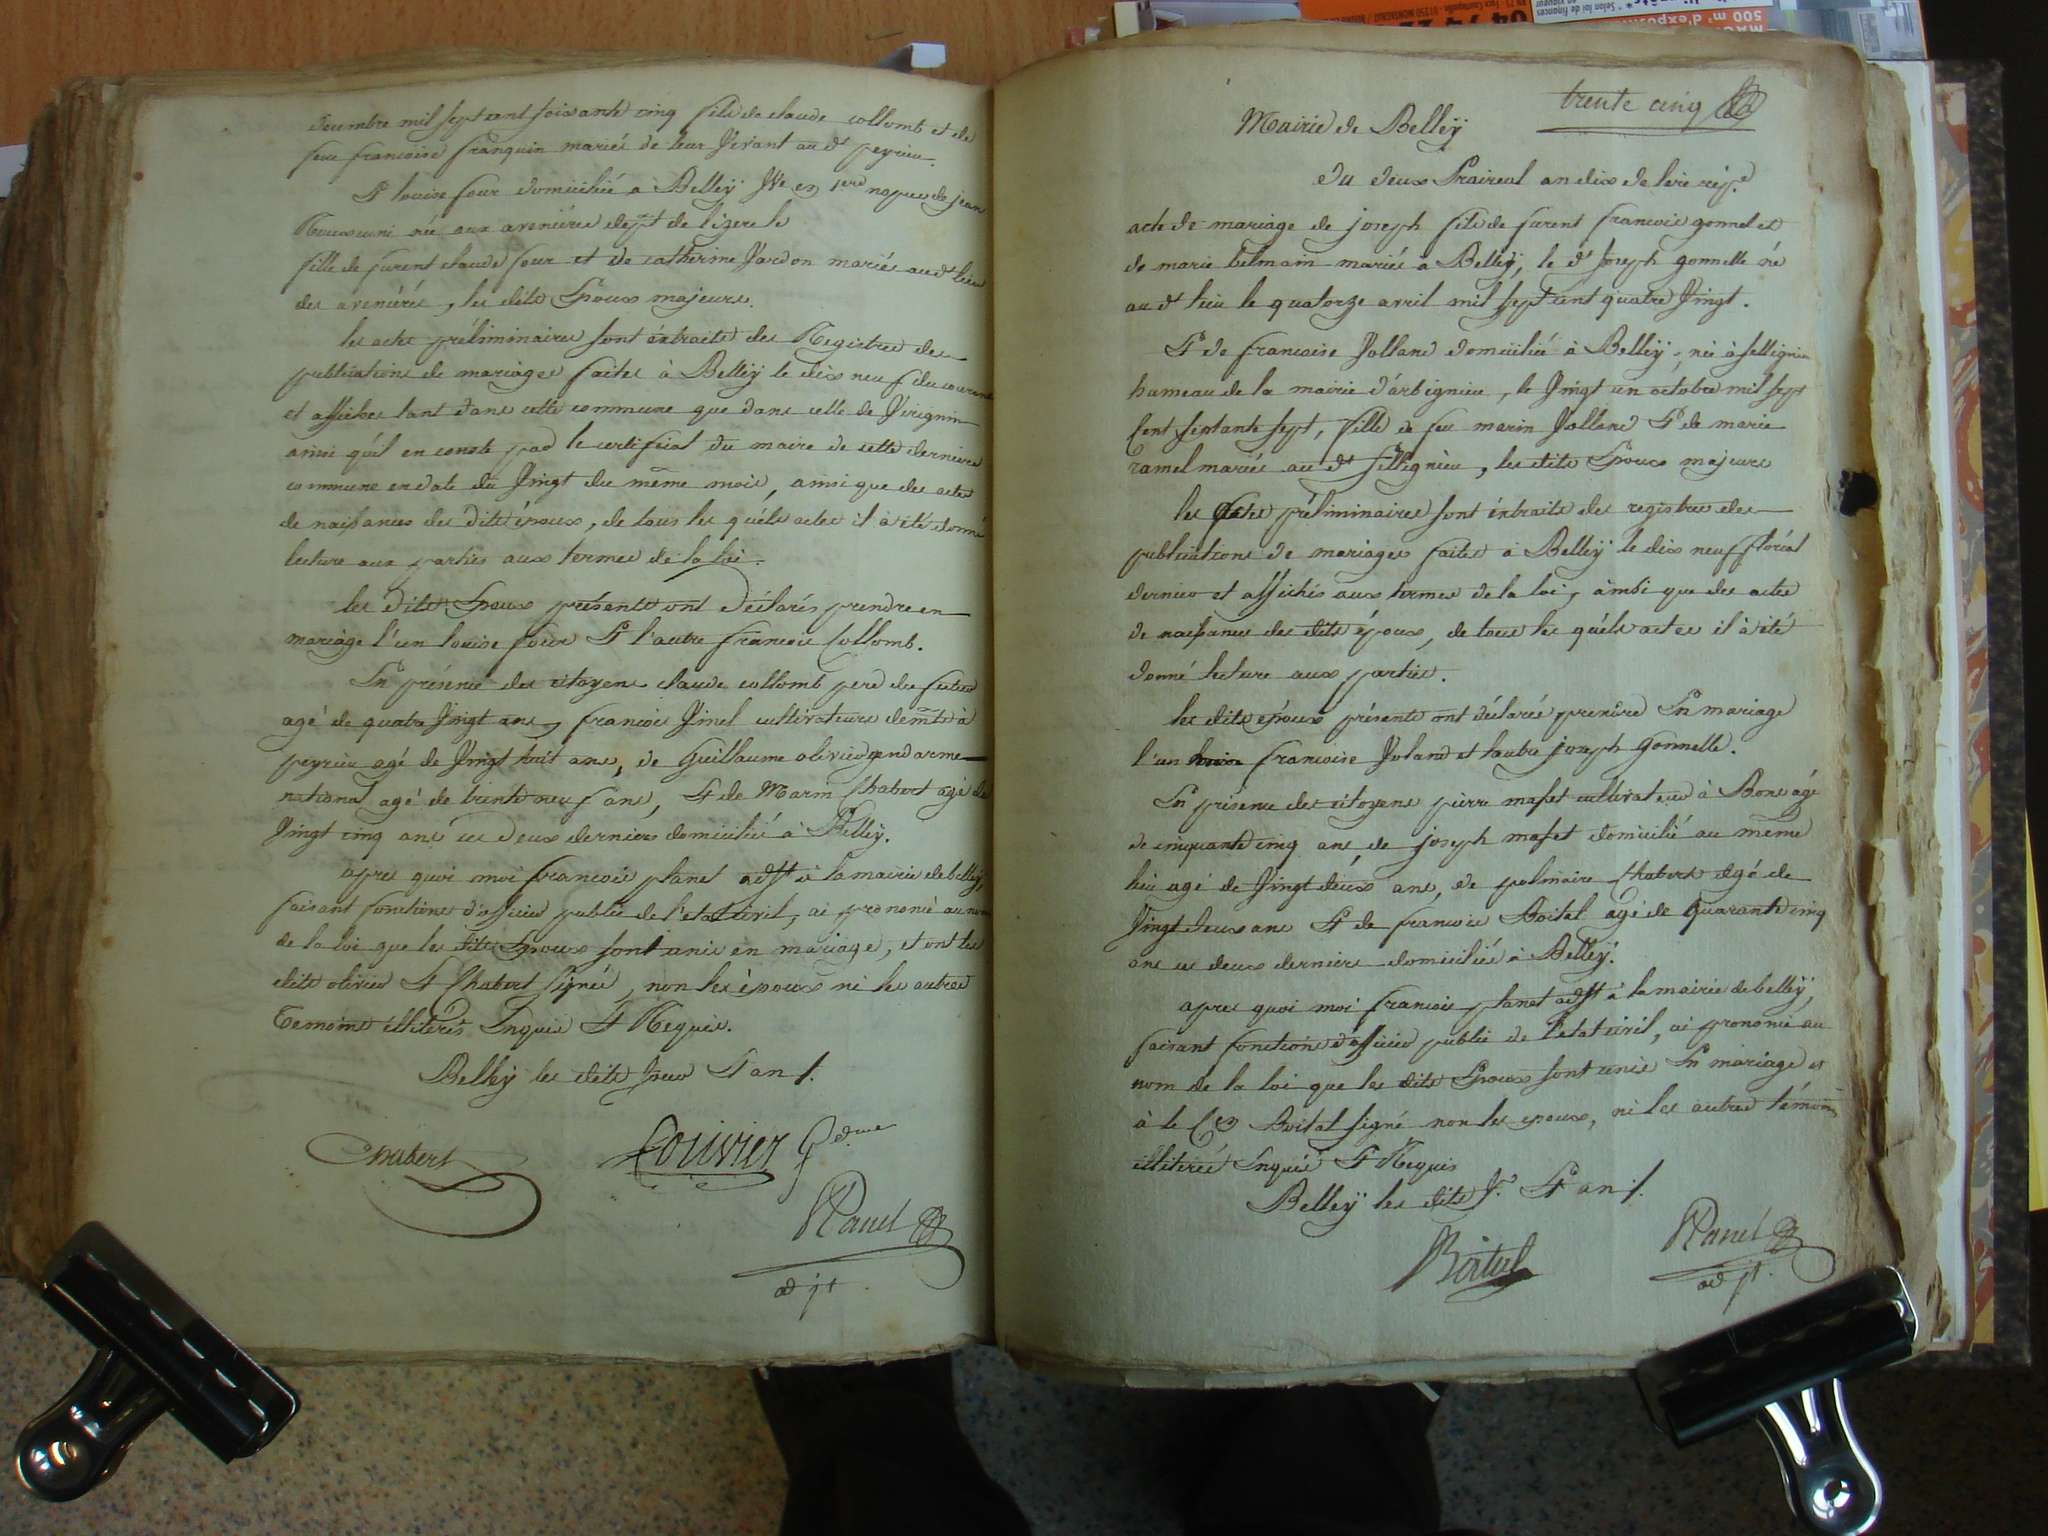 decembre mil sept cent soixante cinq fils de claude collomb et de
feue francoise franquin mariés de leur vivant au dt peyrieu.
Et louise four domiciliée à Belley Vve en 1ere nopces de jean
née aux avenières dept de l'izere le
fille de furent claude four et de catherine Jardon mariés au dt lieu
des avenières, les dits Epoux majeurs.
les actes préliminaires sont éxtraits des Registres des
publications de mariages faites à Belley le dix neuf du courant
et affichés tant dans cette commune que dans celle de Virignin
ainsi qu'il en conste par le certificat du maire de cette derniere
commune en date du Vingt du même mois, ainsi que des actes
de naissances des dits époux, de tous les quéls actes il à été donné
lecture aux parties aux termes de la loi.
les dits Epoux présents ont déclarés prendre en
mariage l'un louise four Et l'autre francois Collomb.
En présence des citoyens claude collomb pere du futur
agé de quatre Vingt ans, francois Vinel cultivateurs demts à
peyrieu agé de Vingt huit ans, de Guillaume olivier gendarme
national agé de trente neuf ans, Et de Marin Chabert agé de
Vingt cinq ans ces deux derniers domicilié à Belley.
apres quoi moi francois planet adjt à la mairie de belley,
faisant fonctions d'officier public de l'etat civil, ai prononcé au nom
de la loi que les dits Epoux sont unis en mariage, et ont les
dits olivier Et Chabert signés, non les époux ni les autres
Temoins illiterés Enquis Et Requis.
Belley les dits Jour Et an /.
Chabert
Louivier Gdme
Planet
adjt
trente cinq
Mairie de Belleÿ
du deux Praireal an dix de l'ère rép.e
acte de mariage de joseph fils de furent francois gonnel et
de marie belmain mariés à Belley, le dt Joseph gonnelle né
au dt lieu le quatorze avril mil sept cent quatre Vingt.
Et de francoise Jolland domiciliée à Belley, née à sillignieu
hameau de la mairie d'arbignieu, le Vingt un octobre mil sept
Cent septante sept, fille de feu marin Jolland Et de marie
ramel mariés au dt Sillignieu, les dits Epoux majeurs
les actes préliminaires sont éxtraits des registres des
publications de mariages faites à Belley le dix neuf floréal
dernier et affichés aux termes de la loi, ainsi que des actes
de naissances des dits époux, de tous les quéls actes il à été
donné lecture aux parties.
les dits epoux présents ont déclarés prendre En mariage
l'un francoise Joland et l'autre joseph Gonnelle.
En présence des citoyens pierre masset cultivateur à Bons agé
de cinquante cinq ans, de joseph masset domicilié au même
lieu agé de Vingt deux ans, de Chabert agé de
Vingt deux ans Et de francois Boitel agé de quarante cinq
ans ces deux derniers domiciliés à Belley.
apres quoi moi francois planet adjt à la mairie de belley,
faisant fonctions d'officier public de l'etat civil, ai prononcé au
nom de la loi que les dits Epoux sont unis En mariage et
à le Cen Boitel signé non les epoux, ni les autres témoins
illiterés Enquis Et Requis
Belley les dits Jr Et an /.
Boitel
Planet
adjt.